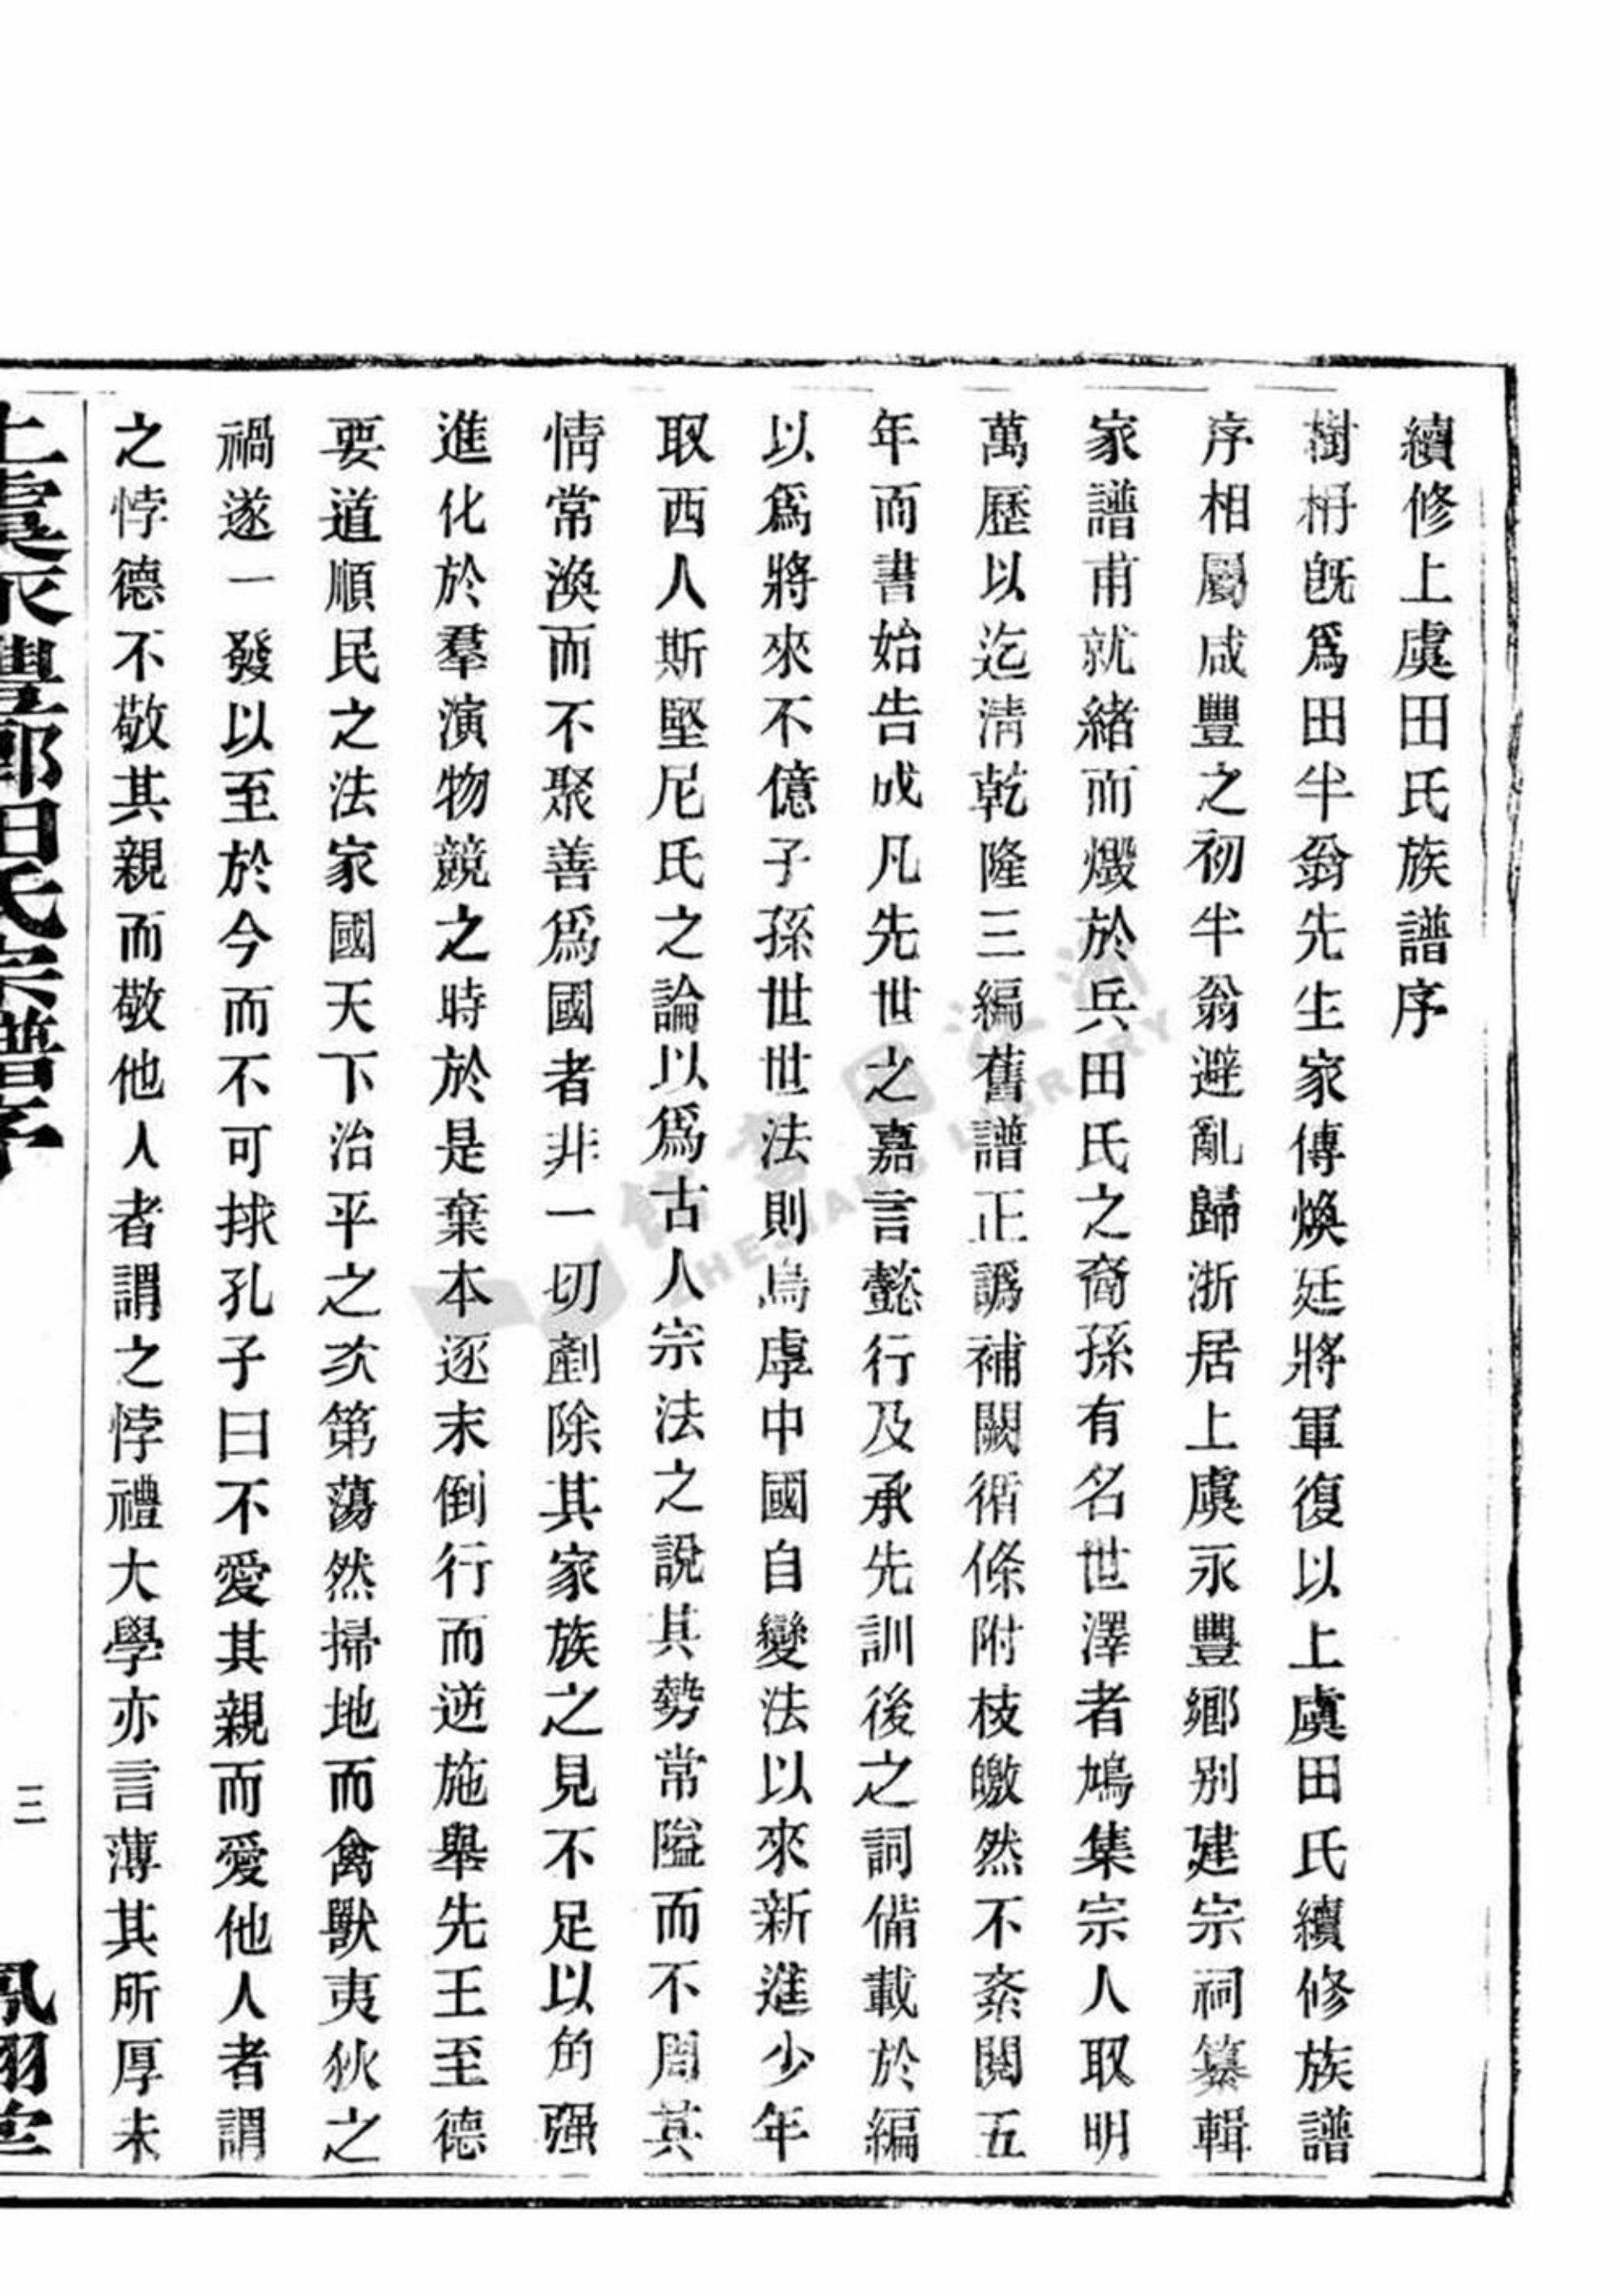 續修上虞田氏族譜序
樹枏旣爲田半翁先生家傳煥廷將軍復以上虞田氏續修族譜
序相屬咸豐之初半翁避亂歸浙居上虞永豐鄉別建宗祠纂輯
家譜甫就緒而燬於兵田氏之裔孫有名世澤者鳩集宗人取明
萬歷以迄淸乾隆三編舊譜正譌補闕循條附枝皦然不紊閱五
年而書始告成凡先世之嘉言懿行及承先訓後之詞備載於編
以爲將來不億子孫世世法則烏虖中國自變法以來新進少年
取西人斯堅尼氏之論以爲古人宗法之說其勢常隘而不周其
情常渙而不聚善爲國者非一切剷除其家族之見不足以角强
進化於羣演物競之時於是棄本逐末倒行而逆施舉先王至德
要道順民之法家國天下治平之次第蕩然掃地而禽獸夷狄之
禍遂一發以至於今而不可救孔子曰不愛其親而愛他人者謂
之悖德不敬其親而敬他人者謂之悖禮大學亦言薄其所厚未
上虞永豐鄉田氏宗譜序
三
鳳翔堂
浙江圖書館
ZHEJIANG LIBRARY